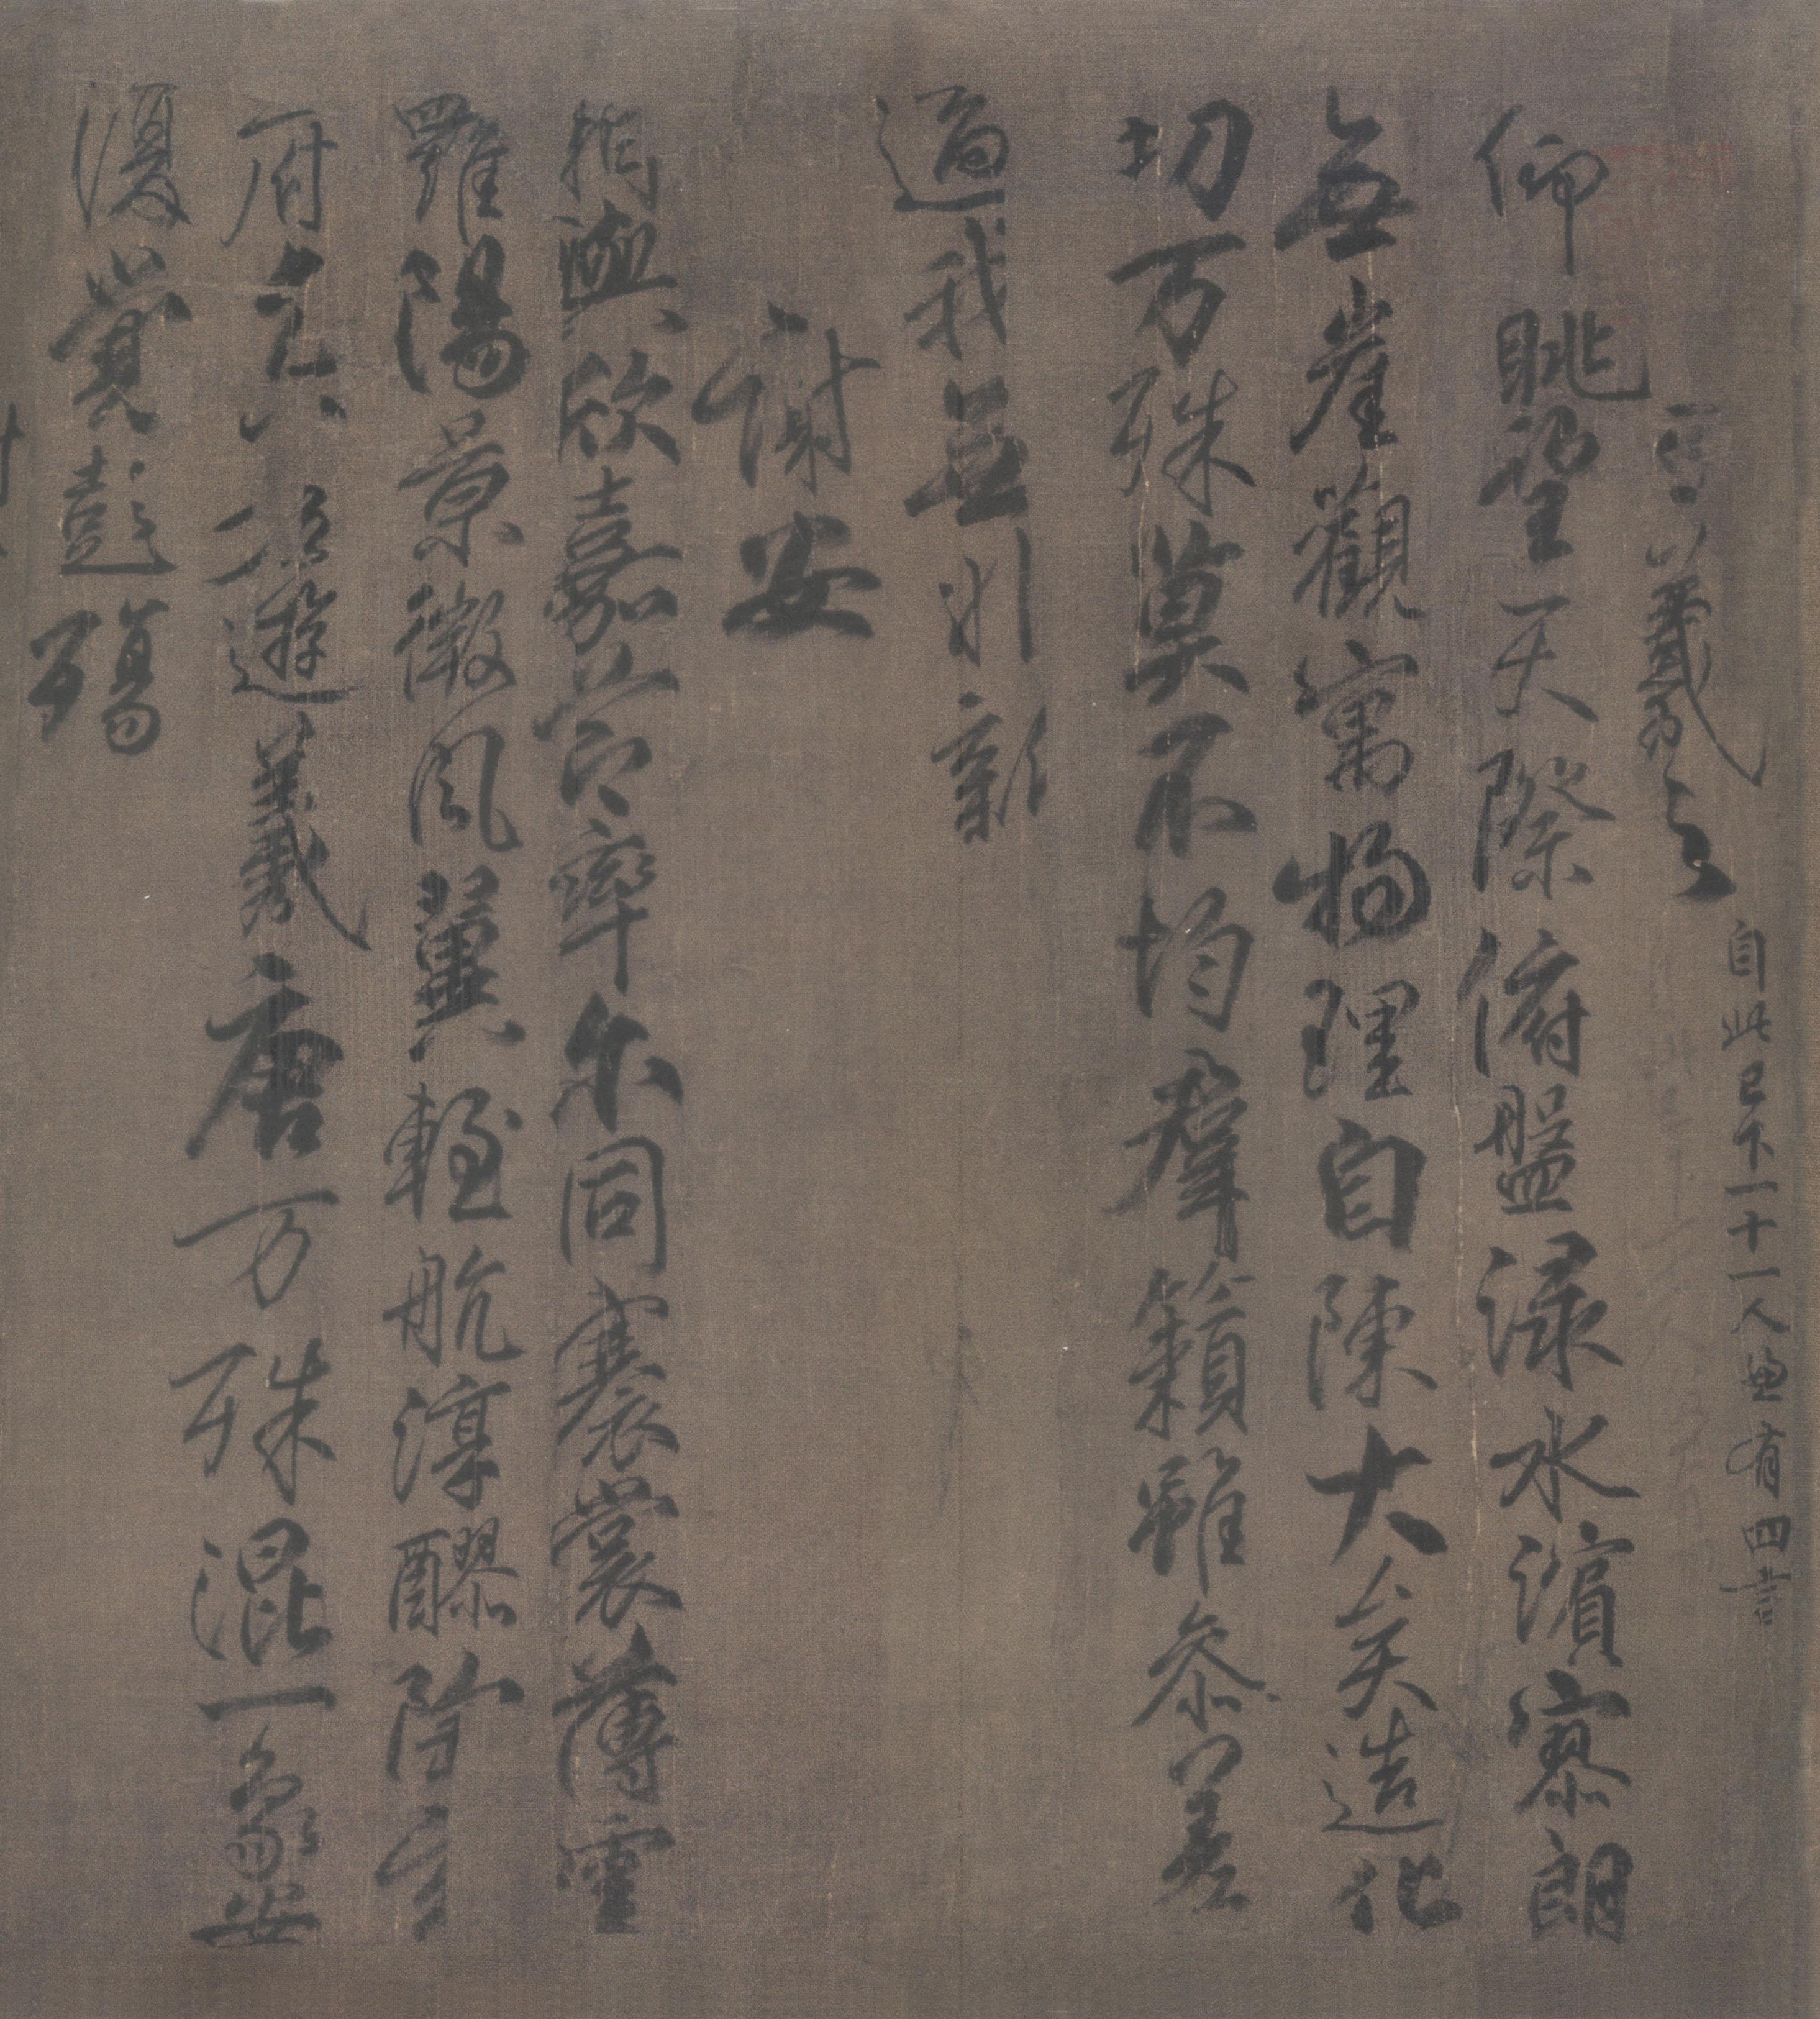 王羲之 自此已下一十一人兼有四言
仰眺望天際俯盤淥水濱寥朗
無崖觀寓物理自陳大矣造化
功万殊莫不均群籟雖參差
適我無非新
謝安
相與欣嘉節率尔同褰裳薄雲
羅陽景微風翼輕航淳醪陶玄
府兀若遊羲唐万殊混一象安
復覺彭殤